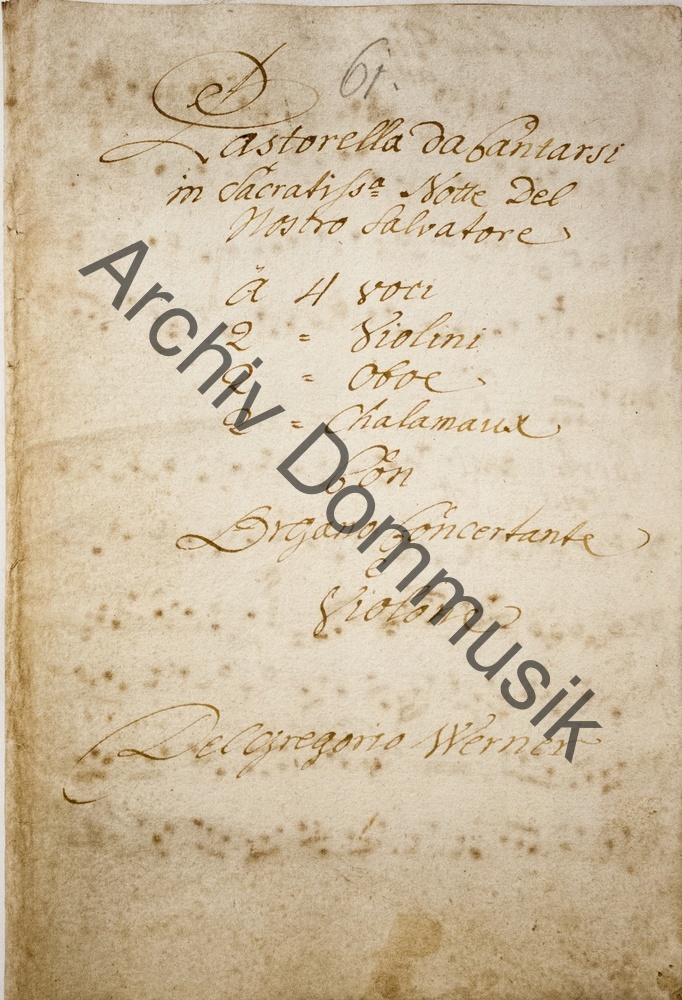 61.
Pastorella da Cantarsi
in Sacratissa Notte Del
Nostro Salvatore
à 4 voci
2 = Violini
2 = Oboe
2 = Chalamaux
Con
Organo Concertante
e
Violone
Del Gregorio Werner
Archiv Dommusik